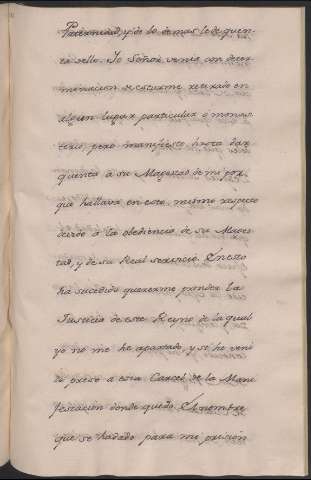 Paternidad, y de lo demas le de quen-
ta ello. Yo Señor venia con deter
minacion de estarme retirado en
algun lugar particular o monas
terio, pero manifiesto hasta dar
quenta a su Magestad de mi por
que hallava en esto mismo respecto
devido a la obediencia de su Mages
tad, y de su Real servicio. En esto
ha sucedido quererme prender la
Justicia de este Reyno de la qual
yo no me he apartado, y si he veni
do preso a esta Carcel de la Mani
festacion donde quedo. El nombre
que se ha dado para mi prision